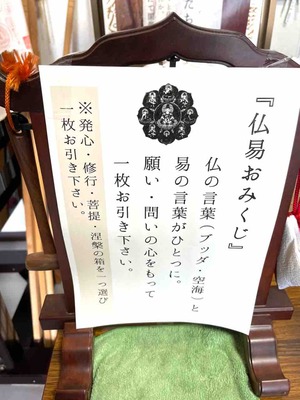 『仏易おみくじ』
仏の言葉（ブッダ・空海）と
易の言葉がひとつに。
願い・問いの心をもって
一枚お引き下さい。
※発心・修行・菩提・涅槃の箱を一つ選び
一枚お引き下さい。